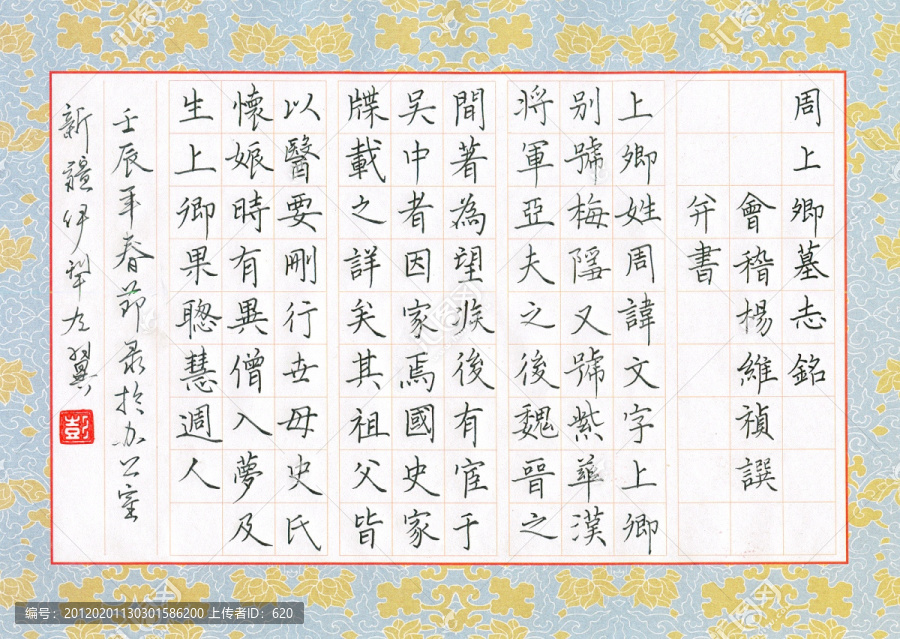 周上卿墓志銘
會稽楊維禎譔
并書
上卿姓周諱文字上卿
别號梅隱又號紫華漢
將軍亞夫之後魏晉之
間著為望族後有宦于
吴中者因家焉國史家
牒載之詳矣其祖父皆
以醫要刪行世母史氏
懷娠時有異僧入夢及
生上卿果聰慧週人
壬辰年春節录於办公室
新疆伊犂左翼
彭
编号：20120201130301586200 上传者ID：620